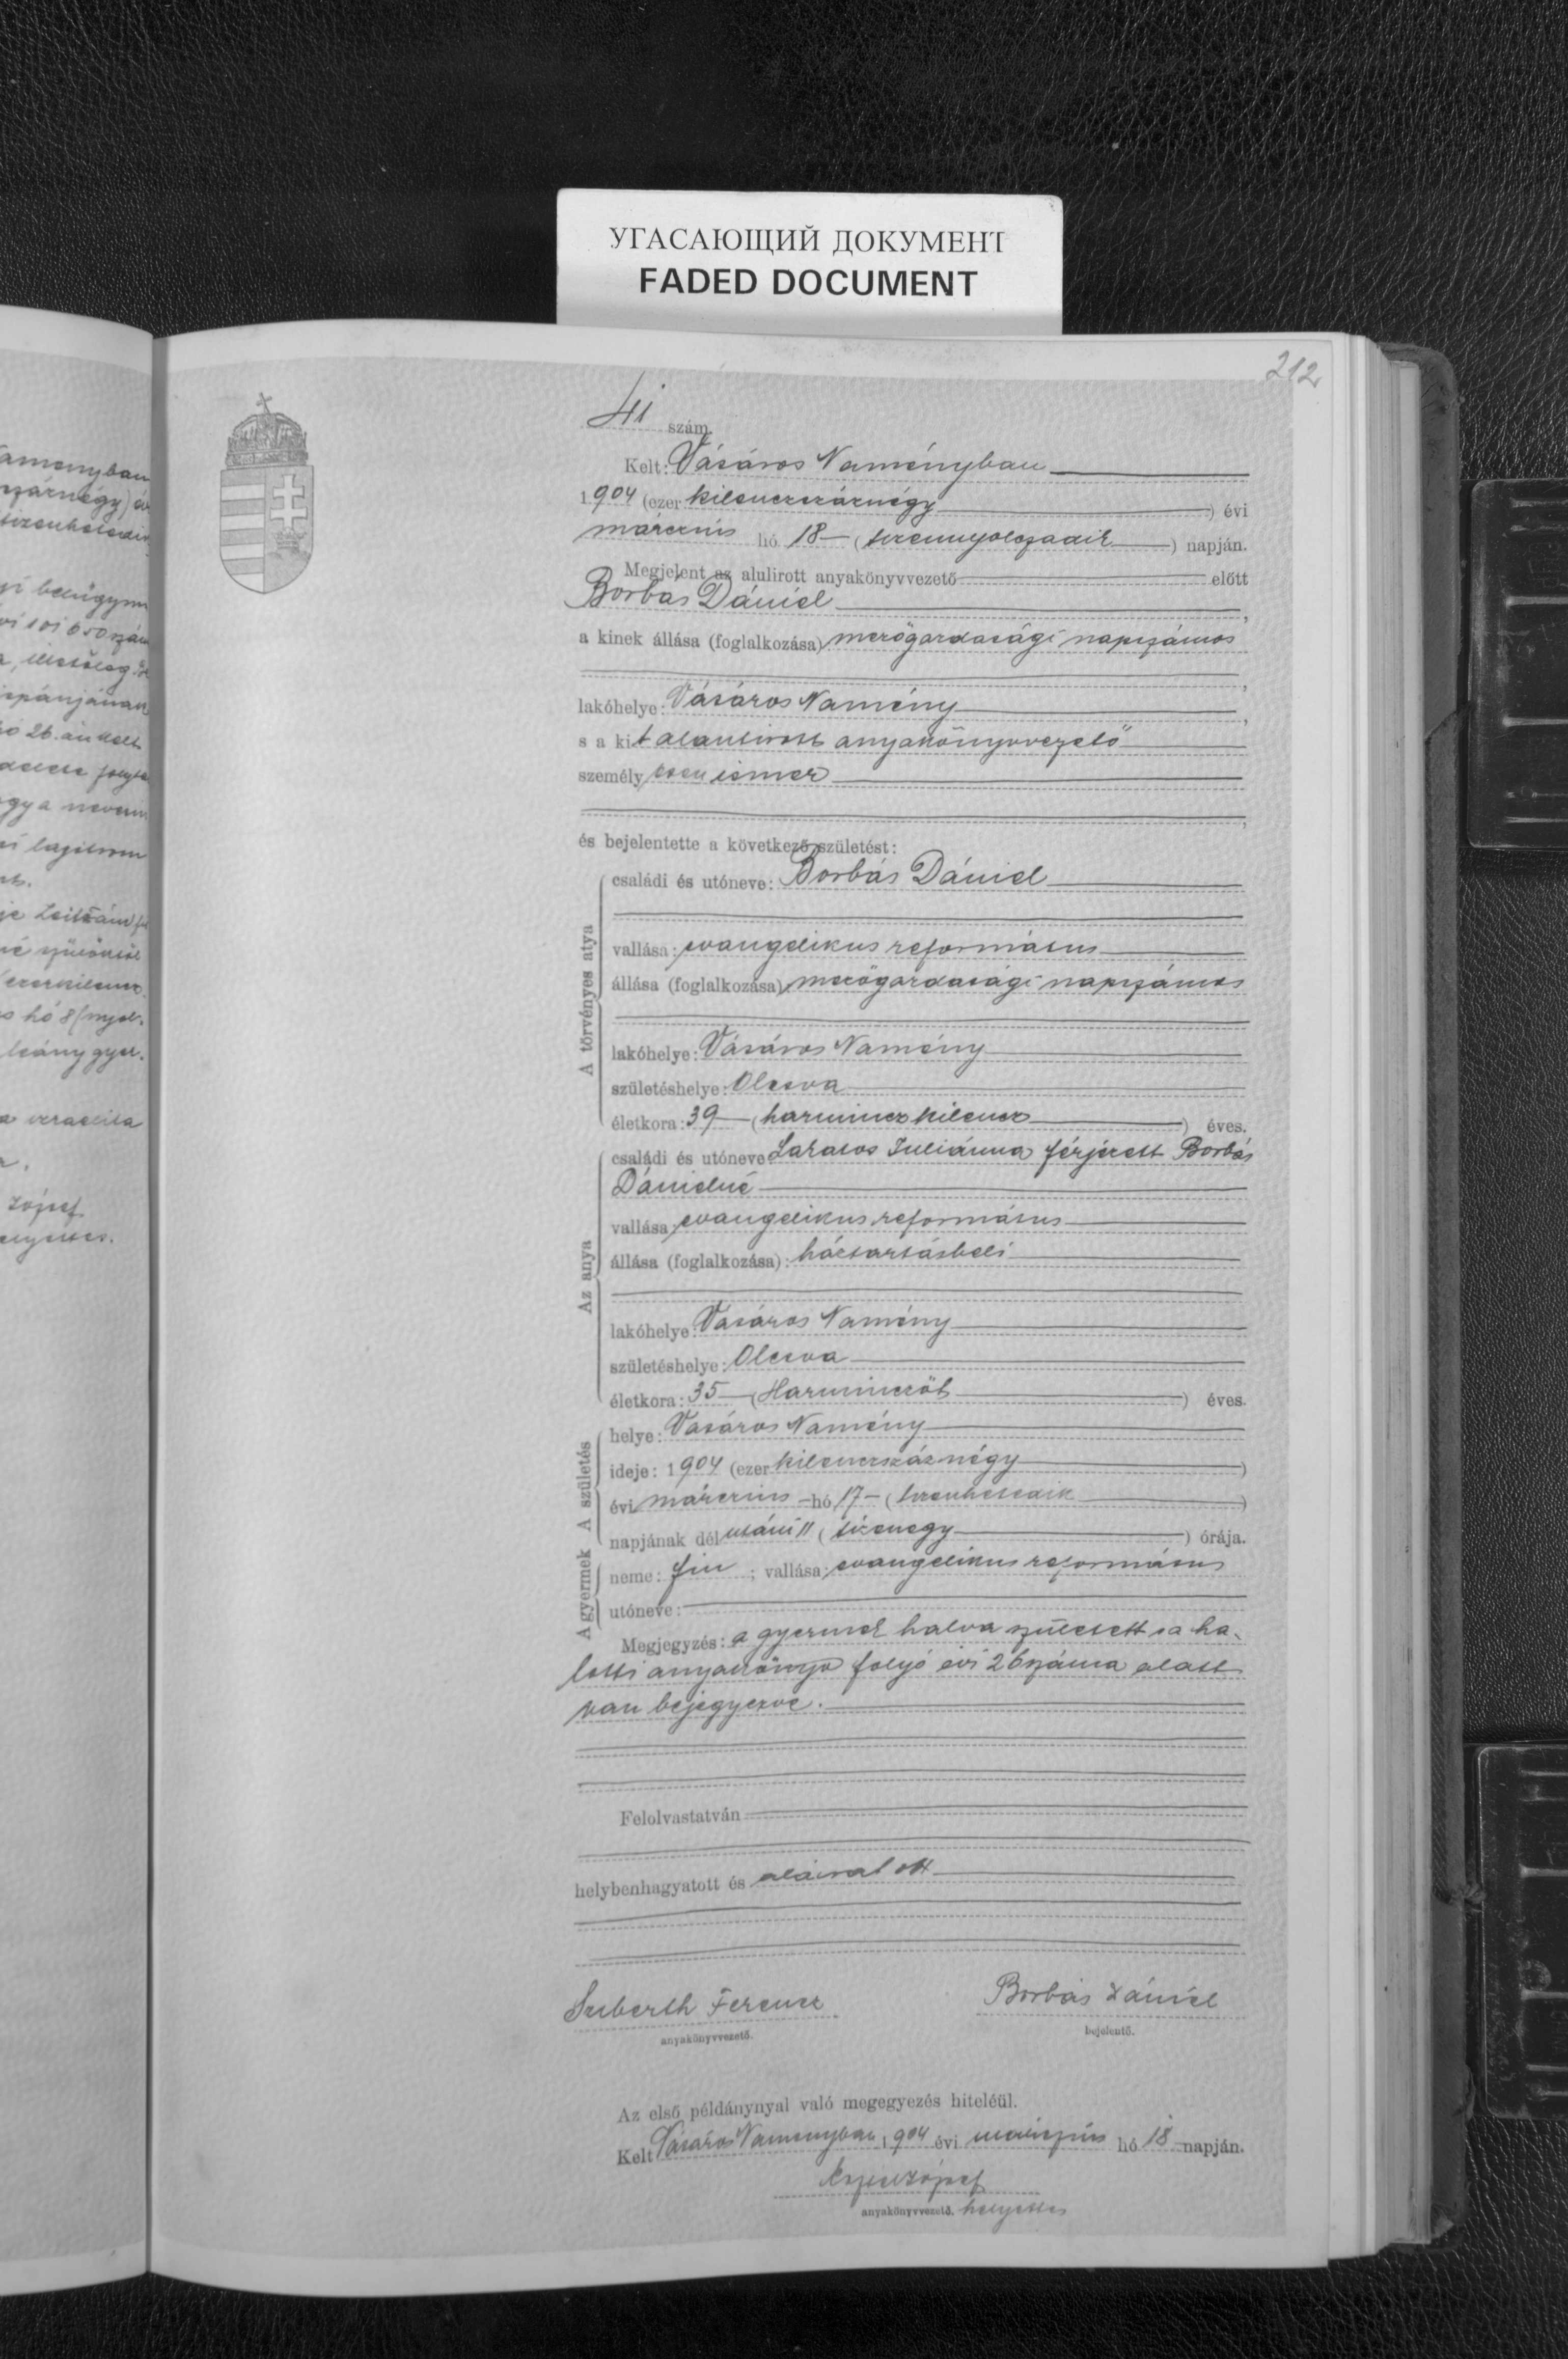 УГАСАЮЩИЙ ДОКУМЕНТ
FADED DOCUMENT
212
41 szám.
Kelt: Vásáros Naményban
1904 (ezer kilenczszáznégy) évi
márczius hó 18 (tizennyolczadik) napján.
Megjelent az alulirott anyakönyvvezető előtt
Borbás Dániel,
a kinek állása (foglalkozása) mezőgazdasági napszámos,
lakóhelye: Vásáros Namény,
s a kit alantirott anyakönyvvezető
személyesen ismer,
és bejelentette a következő születést:
A törvényes atya
családi és utóneve: Borbás Dániel
vallása: evangelikus református
állása (foglalkozása): mezőgazdasági napszámos
lakóhelye: Vásáros Namény
születéshelye: Olcsva
életkora: 39 (harminczkilencz) éves.
Az anya
családi és utóneve: Lakatos Juliánna férjezett Borbás
Dánielné
vallása: evangelikus református
állása (foglalkozása): háztartásbeli
lakóhelye: Vásáros Namény
születéshelye: Olcsva
életkora: 35 (Harminczöt) éves.
A születés
helye: Vásáros Namény
ideje: 1904 (ezer kilenczszáznégy)
évi márczius hó 17 (tizenhetedik)
napjának délutáni 11 (tizenegy) órája.
A gyermek
neme: fiu; vallása: evangelikus református
utóneve:
Megjegyzés: a gyermek halva született s a ha-
lotti anyakönyv folyó évi 26 száma alatt
van bejegyezve.
Felolvastatván
helybenhagyatott és aláiratott
Ferencz
anyakönyvvezető.
Borbás Dániel
bejelentő.
Az első példánynyal való megegyezés hiteléül.
Kelt Vásáros Naményban 1904 évi márczius hó 18 napján.
József
anyakönyvvezető. helyettes